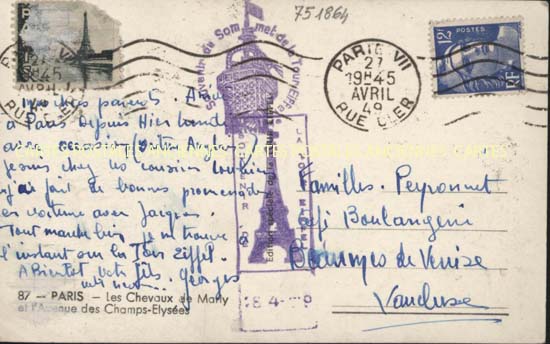 751864
PARIS VII
27
19H45
AVRIL
49
RUE CLER
POSTES
RF
Souvenir du Sommet de la Tour Eiffel
Mes chers parents. Arrivé
à Paris depuis Hier lundi
chez les cousins
j'ai fait de bonnes promenades
en voiture avec Jacques.
Tout marche bien, je me trouve
à l'instant sur la Tour Eiffel.
A Bientôt. votre fils. Georges
Familles. Peyronnet
Boulangerie
Beaumes de Venise
Vaucluse
87 — PARIS — Les Chevaux de Marly
et l'Avenue des Champs-Elysées